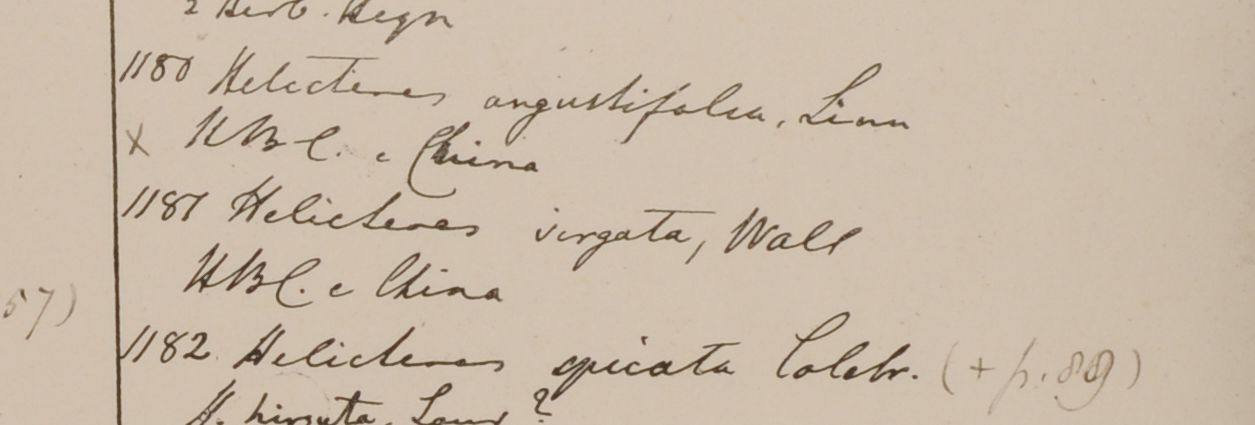 2 Herb. Heyn
1180 Helicteres angustifolia, Linn
x HBC. e China
1181 Helicteres virgata, Wall
HBC. e China
57)
1182 Helicteres spicata Colebr. (+ p. 89)
H. hirsuta, Lour ?